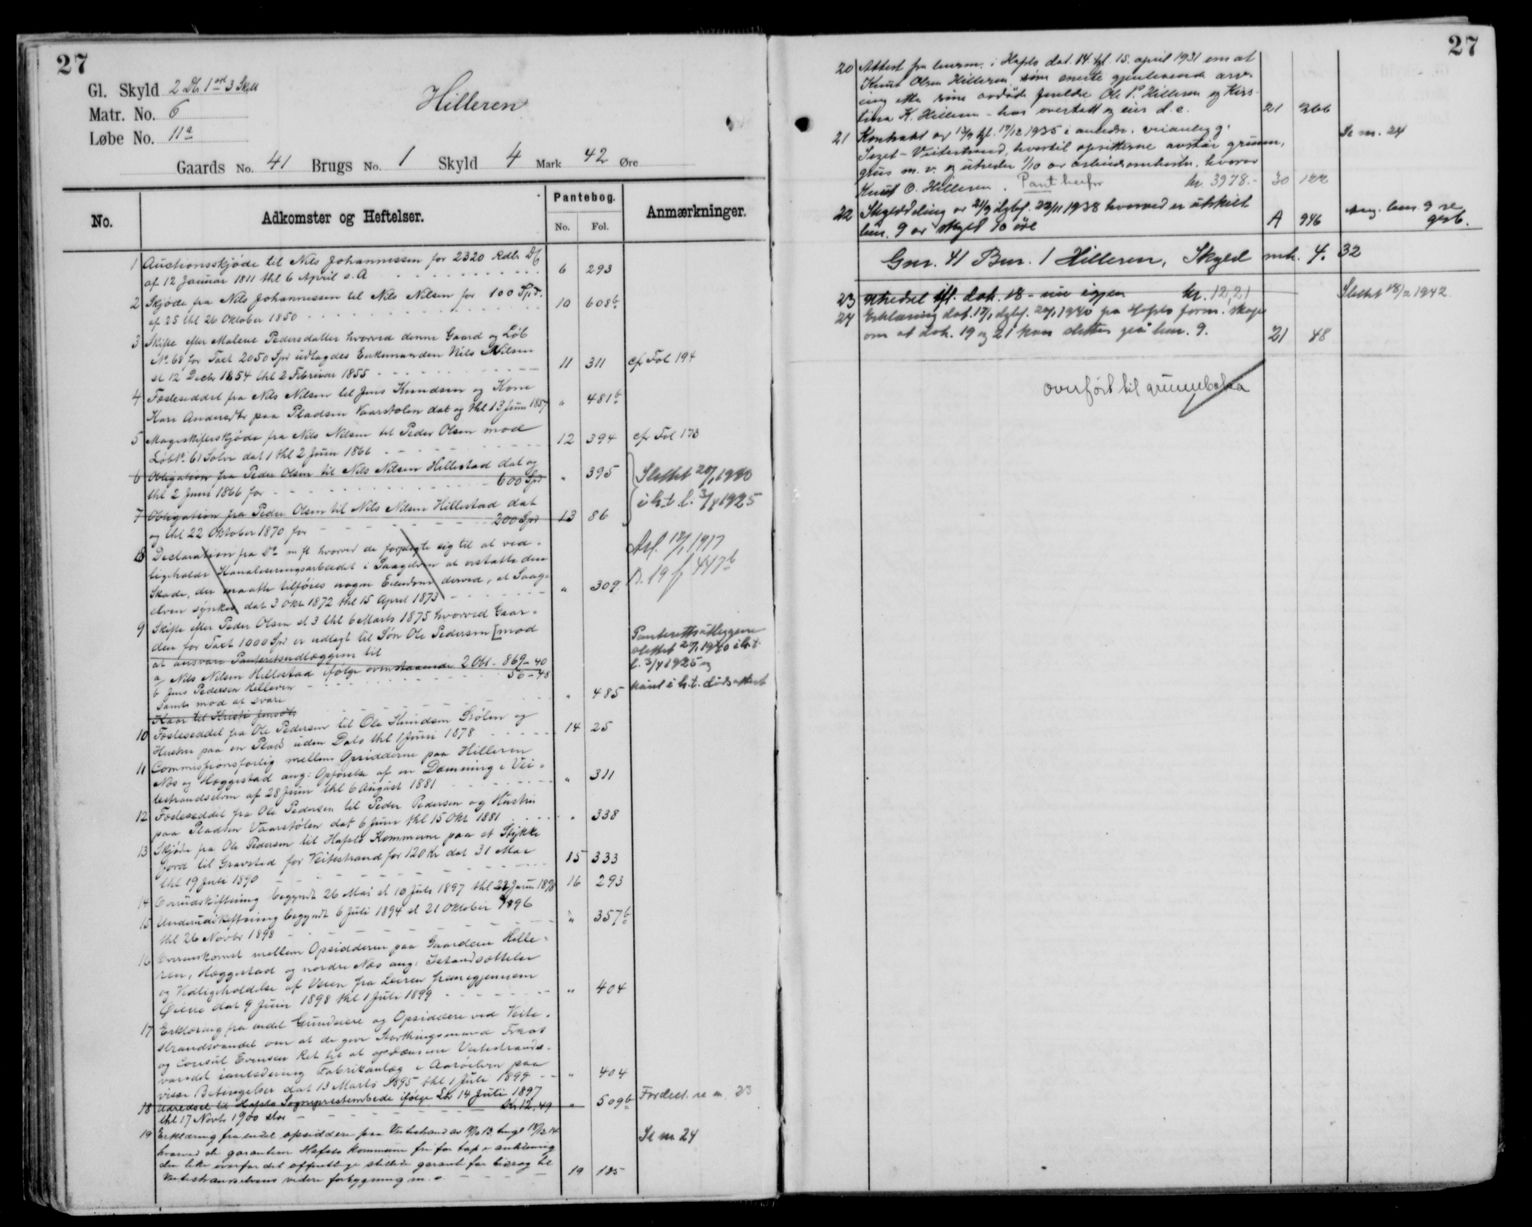 27
Gl. Skyld 2 Dlr 1 ort 3 Skill
Matr. No. 6
Løbe No. 11a
Hilleren
Gaards No. 41 Brugs No. 1 Skyld 4 Mark 42 Øre
No.
Adkomster og Heftelser.
Pantebog.
No.
Fol.
Anmærkninger.
1 Auctionsskjøde til Nils Johannessen for 2320 Rdlr
af 12 Januar 1811 thl 6 April s. A 6 293
2 Skjøde fra Nils Johannessen til Nils Nilsen for 100 Spd.
af 25 thl 26 Oktober 1850 10 608b
3 Skifte efter Malene Pedersdatter hvorved denne Gaard og Løb
No 68 for Taxt 2050 Spd udlagdes Enkemanden Nils Nilsen
sl 12 Decbr 1854 thl 2 Februar 1855 11 311 cfr Fol 194
4 Fæsteseddel fra Nils Nilsen til Jens Knudsen og Kone
Kari Andersdtr paa Pladsen Vaarstølen dat og thl 13 Juni 1857 " 481b
5 Mageskifteskjøde fra Nils Nilsen til Peder Olsen mod
Løb No. 61 Solv dat 1 thl 2 Juni 1866 12 394 cfr Fol 173
6 Obligation fra Peder Olsen til Nils Nilsen Hillestad dat og
thl 2 Juni 1866 for 600 Spd " 395 Slettet 20/1 1920
7 Obligation fra Peder Olsen til Nils Nilsen Hillestad dat
og thl 22 Oktober 1870 for 200 Spd 13 86 i h.t. l. 3/4 1925
8 Declaration fra Do m fl hvorved de forpligte sig til at ved-
ligeholde Kanaliseringsarbeidet i Saagelven at erstatte den
Skade, der maatte tilføies nogen Eiendom derved, at Saag-
elven synker dat 3 Okt 1872 thl 15 April 1873 " 309
Avl. 12/1 1917
P. 19 f 447b
9 Skifte efter Peder Olsen sl 3 thl 6 Marts 1875 hvorved Gaar-
den for Taxt 1000 Spd er udlagt til Søn Ole Pedersen [mod
at ansvare Panteretsudlæggene til
a/ Nils Nilsen Hillestad ifølge ovenstaaende 2 Obl - 869 - 40
b Jens Pedersen Hilleren 50 - 48
Samt mod at svare
Kaar til Kristi Jensdtr " 485
Panterettsutleggene
slettet 20/1 1920 i h.t.
l. 3/4 1925 og
kåret i h.t. dødsattest
10 Fæsteseddel fra Ole Pedersen til Ole Knudsen Stølen og
Hustru paa en Plads uden Dato thl 1 Juni 1878 14 25
11 Commissionsforlig mellem Opsidderne paa Hilleren
Næs og Heggestad ang: Opførelse af en Dæmning i Vei-
testrandselven af 28 Juni thl 6 August 1881 " 311
12 Fæsteseddel fra Ole Pedersen til Peder Pedersen og Hustru
paa Pladsen Vaarstølen dat 6 Juni thl 15 Okt 1881 " 338
13 Skjøde fra Ole Pedersen til Hafslo Kommune paa et Stykke
Jord til Gravsted for Veitestrand for 120 Kr dat 31 Mai
thl 19 Juli 1890 15 333
14 Overudskiftning begyndt 26 Mai sl 10 Juli 1897 thl 22 Januar 1898 16 293
15 Underudskiftning begyndt 6 Juli 1894 sl 21 Oktober 1896
thl 26 Novbr 1898 " 357b
16 Overenskomst mellem Opsidderne paa Gaardene Hille-
ren, Heggestad og nordre Næs ang: Istandsættelse
og Vedligeholdelse af Veien fra Leiren frem igjennem
Øiene dat 9 Juni 1898 thl 1 Juli 1899 " 404
17 Erklæring fra endel Grundeiere og Opsiddere ved Veite-
strandsvandet om at de give Storthingsmand
og Consul Evensen Ret til at opdæmme Veitestrands-
vandet i anledning Fabrikanlæg i Aarøelven paa
visse Betingelser dat 13 Marts 1895 thl 1 Juli 1899 " 404
18 Udredsel til Hafslo Sogneprestembede ifølge Lov 14 Juli 1897
thl 17 Novbr 1900 stor Kr 12,49 " 509b Fordelt. se n. 23
19 Erklæring fra endel opsiddere paa Veitestrand
hvorved de garanterer Hafslo kommune fri for tap i anledning
den like overfor det offentlige stillede garanti for bidrag til
Veitestrandselvens videre forbygning m. v. 19 185 Se n 24
27
20 Attest fra lensm. i Hafslo dat. 14. tgl. 15. april 1931 om at
Knut Olsen Hilleren som eneste gjenlevende arv-
ing etter sine avdøde foreldre Ole P. Hilleren og Kirs-
tina K. Hilleren - har overtatt og eier d. e. 21 266
21 Kontrakt av 13/9 tgl. 17/12 1935 i anledn. veianlegg
- Veitestrand, hvortil opsitterne avstår grunn,
grus m. v. og utreder 1/10 av arbeidsomkostn. hvorav
Knut O. Hilleren. Pant herfor kr. 3978.- 20 122 Se n. 24
22 Skylddeling av 21/9 dgbf. 22/11 1938 hvorved er utskilt
bnr. 9 av skyld 10 øre A 946 Ang. bnr. 9 se
Gnr. 41 Bnr. 1 Hilleren, Skyld mk. 4.32
23 Utredsel ifl. dok. 18 - nu igjen kr. 12,21 Slettet 1942
24 Erklæring dat. 17/1 dgbf. 20/1 1940 fra Hafslo form.skap
om at dok. 19 og 21 kan slettes på bnr. 9. 21 48
overført til grunnboka